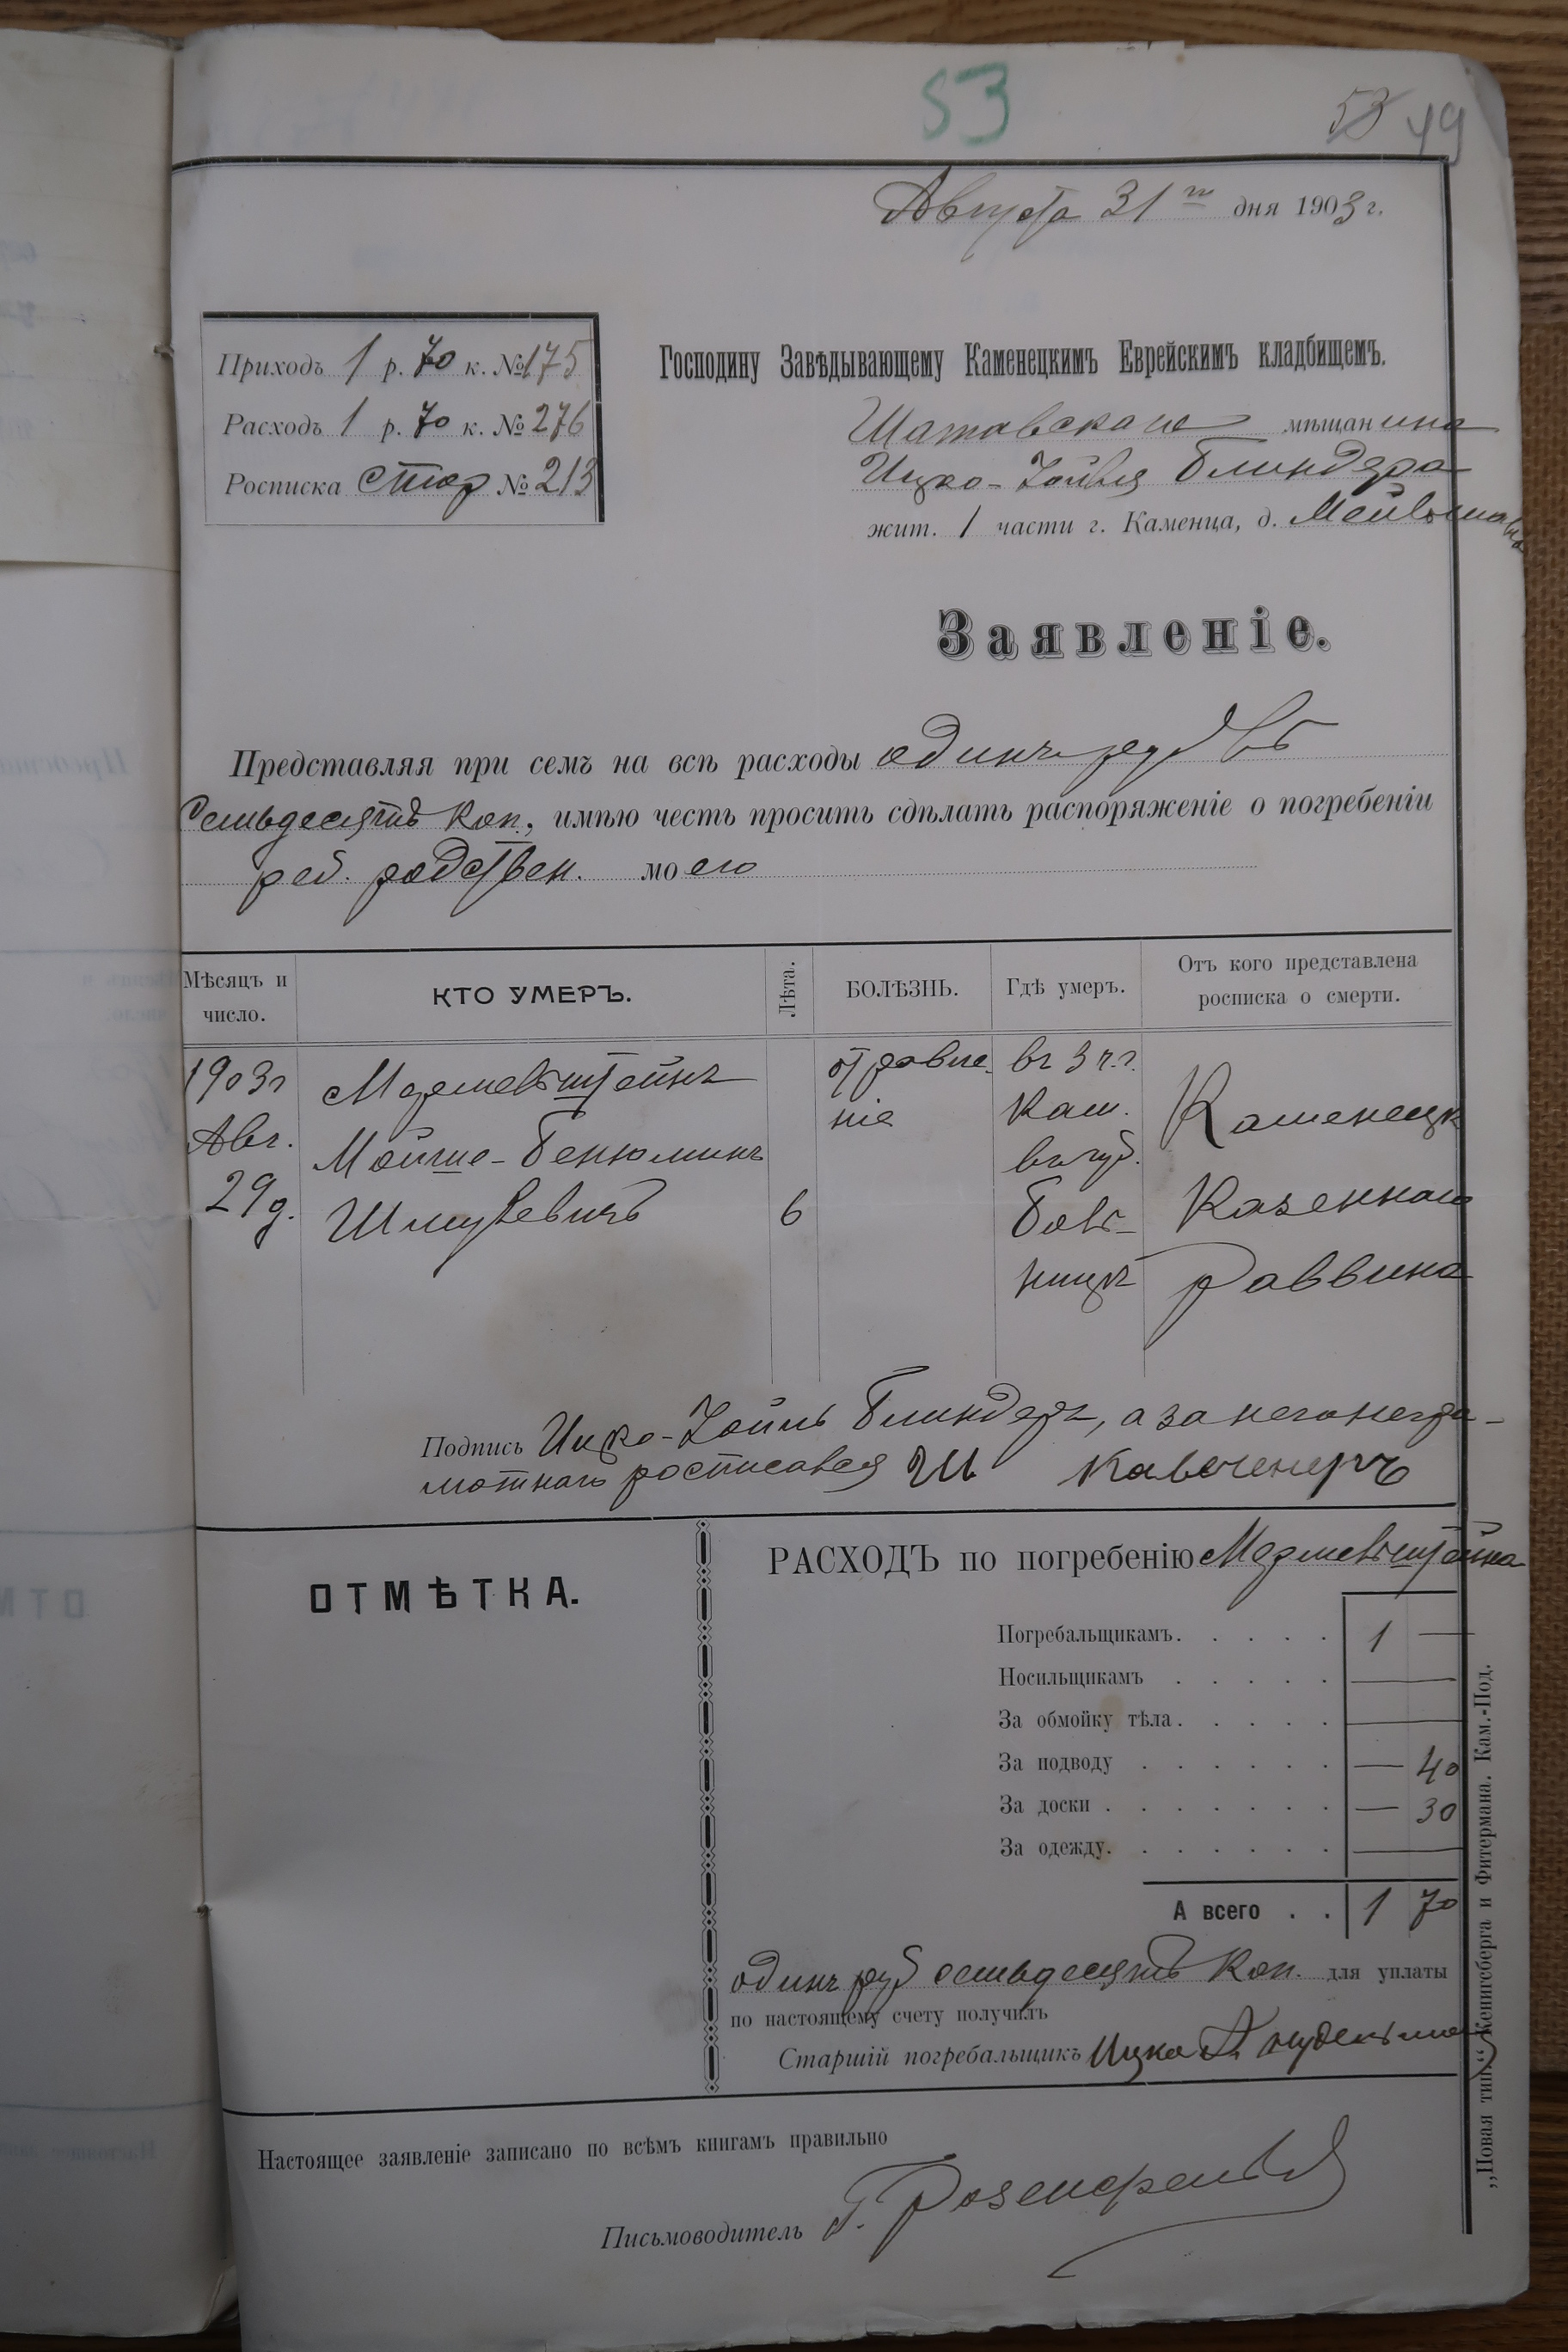 53
53 49
Августа 31го дня 1903 г.
Приходъ 1 р. 70 к. №175
Расходъ 1 р. 70 к. № 276
Росписка стор № 213
Господину Завѣдывающему Каменецкимъ Еврейскимъ кладбищемъ.
Шатавскаго мѣщанина
Ицко- Блиндера
жит. 1 части г. Каменца, д.
Заявленіе.
Представляя при семъ на всѣ расходы одинъ рубль
семьдесятъ коп., имѣю честь просить сдѣлать распоряженіе о погребеніи
реб. родствен. моего
Мѣсяцъ и число.
КТО УМЕРЪ.
Лѣта.
БОЛѢЗНЬ.
Гдѣ умеръ.
Отъ кого представлена росписка о смерти.
1903 г
Авг.
29 д.
Мормельштейнъ
Мойше-Бенюминъ
Шмулевичъ
6
отравле-
ніе
въ 3 ч. г.
Кам.
въ губ.
боль-
ницѣ
Каменецк
Казеннаго
Раввина
Подпись Ицко- Блиндеръ, а за него негра-
мотнаго росписался Ш
РАСХОДЪ по погребенію Мормельштейна
ОТМѢТКА.
Погребальщикамъ. . . . . 1 —
Носильщикамъ . . . . . —
За обмойку тѣла. . . . . —
За подводу . . . . . . — 40
За доски . . . . . . . — 30
За одежду. . . . . . . —
А всего . . 1 70
одинъ руб семьдесятъ коп. для уплаты
по настоящему счету получилъ
Старшій погребальщикъ Ицко
Настоящее заявленіе записано по всѣмъ книгамъ правильно
Письмоводитель Г. Розенфельд
„Новая тип.“ Кенигсберга и Фитермана. Кам.-Под.